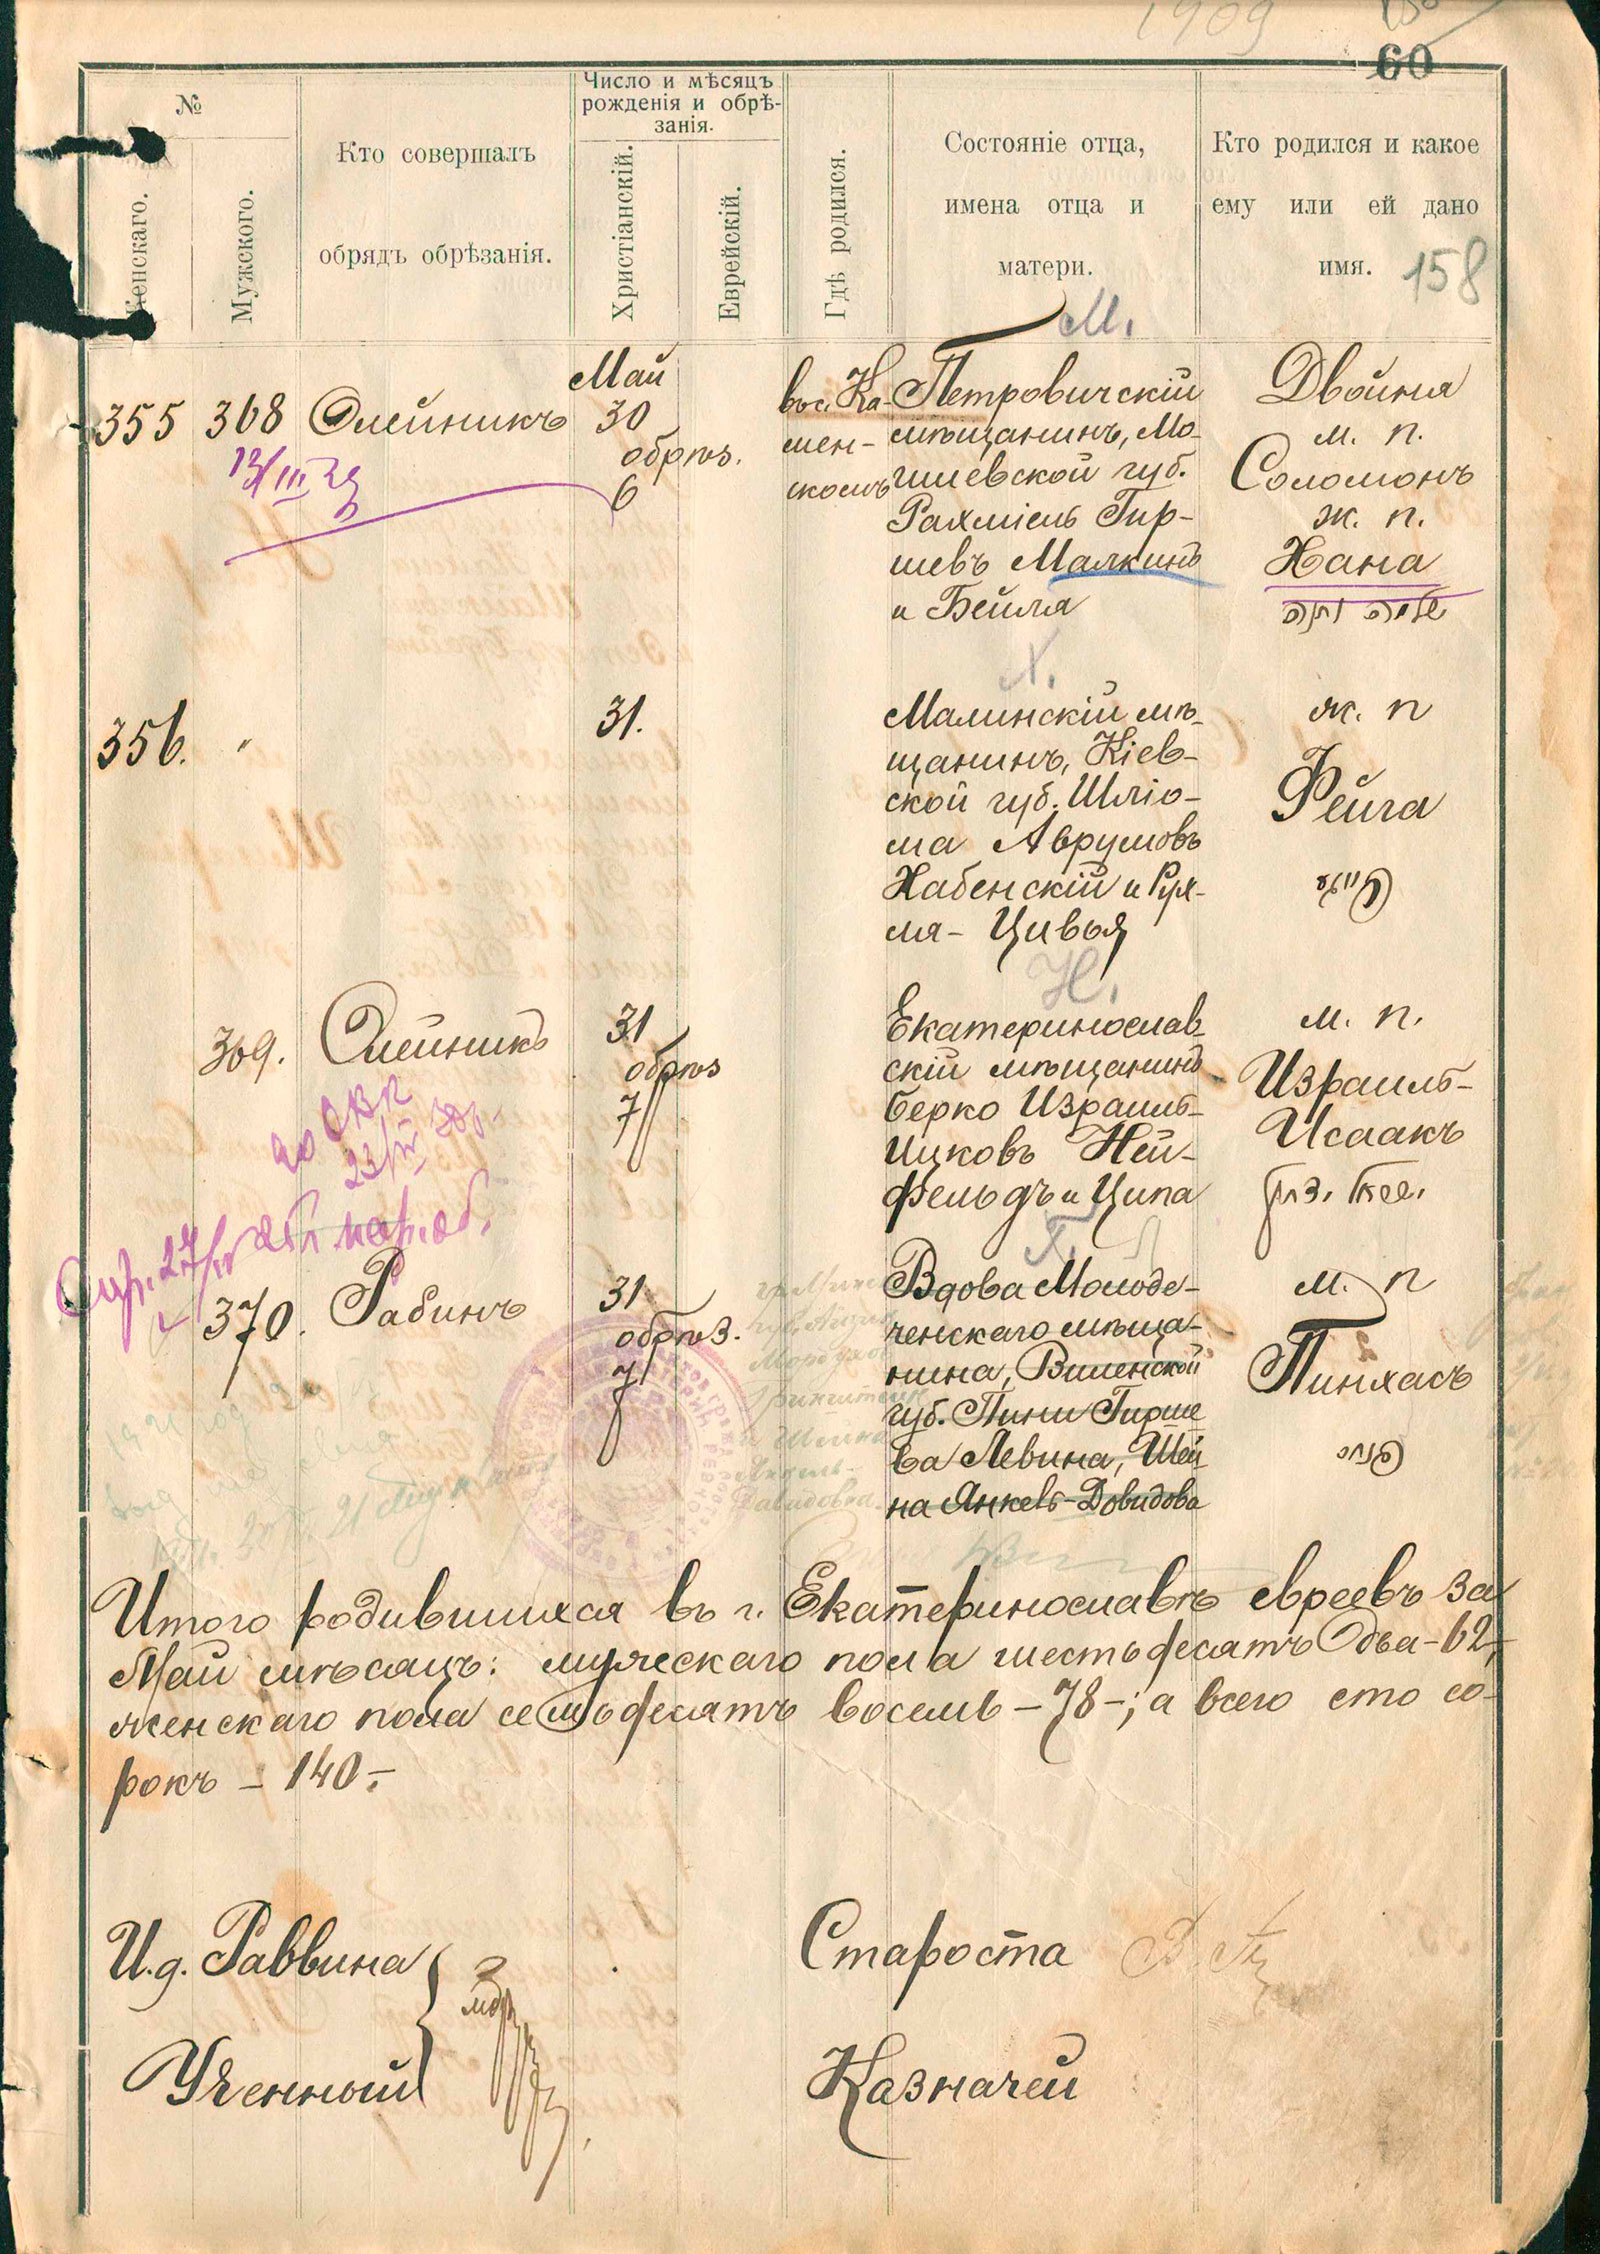 1909
60
№
Женскаго.
Мужского.
Кто совершалъ
обрядъ обрѣзанія.
Число и мѣсяцъ
рожденія и обрѣ-
занія.
Христіанскій.
Еврейскій.
Гдѣ родился.
Состояніе отца,
имена отца и
матери.
Кто родился и какое
ему или ей дано
имя.
158
М.
355 368 Олейникъ
Май
30
обрѣз.
6
13/III 29
вос. Ка-
мен-
скомъ
Петровичскій
мѣщанинъ, Мо-
гилевской губ.
Рахміель Гир-
шевъ Малкинъ
и Бейля
Двойня
м. п.
Соломонъ
ж. п.
Хана
Х.
356. "
31.
Малинскій мѣ-
щанинъ, Кіев-
ской губ. Шліо-
ма Аврумовъ
Хабенскій и Рух-
ля - Цивья
ж. п
Фейга
פייגא
Н.
369. Олейникъ
31
обрѣз
7
Екатеринослав-
скій мѣщанинъ
Берко Израиль-
Ицковъ Ней-
фельдъ и Ципа
м. п.
Израиль-
Исаакъ
370. Рабинъ
31
обрѣз.
7
Вдова Молоде-
ченскаго мѣща-
нина, Виленской
губ. Пини Гирше
ва Левина, Шей
на Янкелъ-Довидова
м. п
Пинхасъ
פנחס
Итого родившихся въ г. Екатеринославѣ евреевъ за
Май мѣсяцъ: мужескаго пола шестьдесятъ два - 62-,
женскаго пола семьдесятъ восемь - 78 -; а всего сто со-
рокъ - 140 -
И.д. Раввина
Ученный
Староста
Казначей